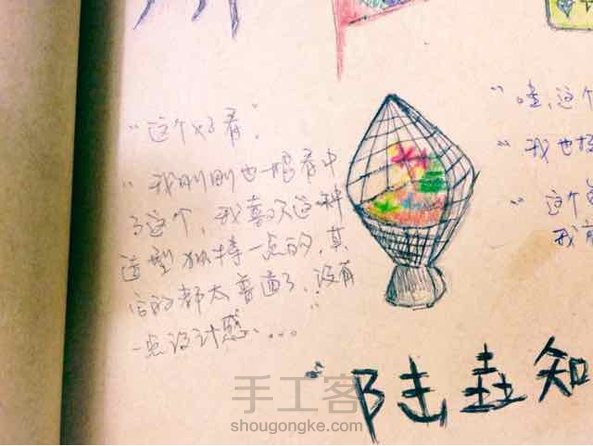 "这个好看"
"我刚刚也一眼看中
了这个,我喜欢这种
造型独特一点的,其
他的都太普通了,没有
一点设计感、...。"
"哇,这个
"我也
"这个
我
"陆垚知
手工客
shougongke.com